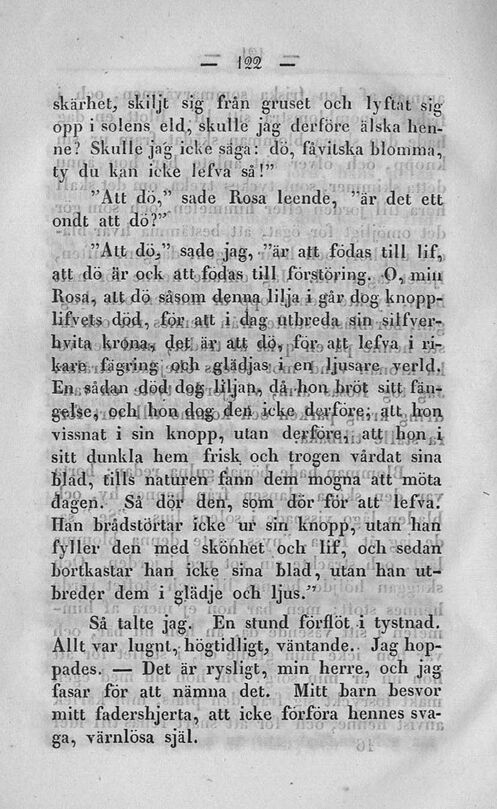 — 122 —
skärhet, skiljt sig från gruset och lyftat sig
opp i solens eld, skulle jag derföre älska hen-
ne? Skulle jag icke säga: dö, fåvitska blomma,
ty du kan icke lefva så!”
”Att dö,” sade Rosa leende, ”är det ett
ondt att dö?”
”Att dö,” sade jag, ”är att födas till lif,
att dö är ock att födas till förstöring. O, min
Rosa, att dö såsom denna lilja i går dog knopp-
lifvets död, för att i dag utbreda sin silfver-
hvita krona, det är att dö, för att lefva i ri-
kare fägring och glädjas i en ljusare verld.
En sådan död dog liljan, då hon bröt sitt fän-
gelse, och hon dog den icke derföre, att hon
vissnat i sin knopp, utan derföre, att hon i
sitt dunkla hem frisk och trogen vårdat sina
blad, tills naturen fann dem mogna att möta
dagen. Så dör den, som dör för att lefva.
Han brådstörtar icke ur sin knopp, utan han
fyller den med skönhet och lif, och sedan
bortkastar han icke sina blad, utan han ut-
breder dem i glädje och ljus.”
Så talte jag. En stund förflöt i tystnad.
Allt var lugnt, högtidligt, väntande. Jag hop-
pades. — Det är rysligt, min herre, och jag
fasar för att nämna det. Mitt barn besvor
mitt fadershjerta, att icke förföra hennes sva-
ga, värnlösa själ.